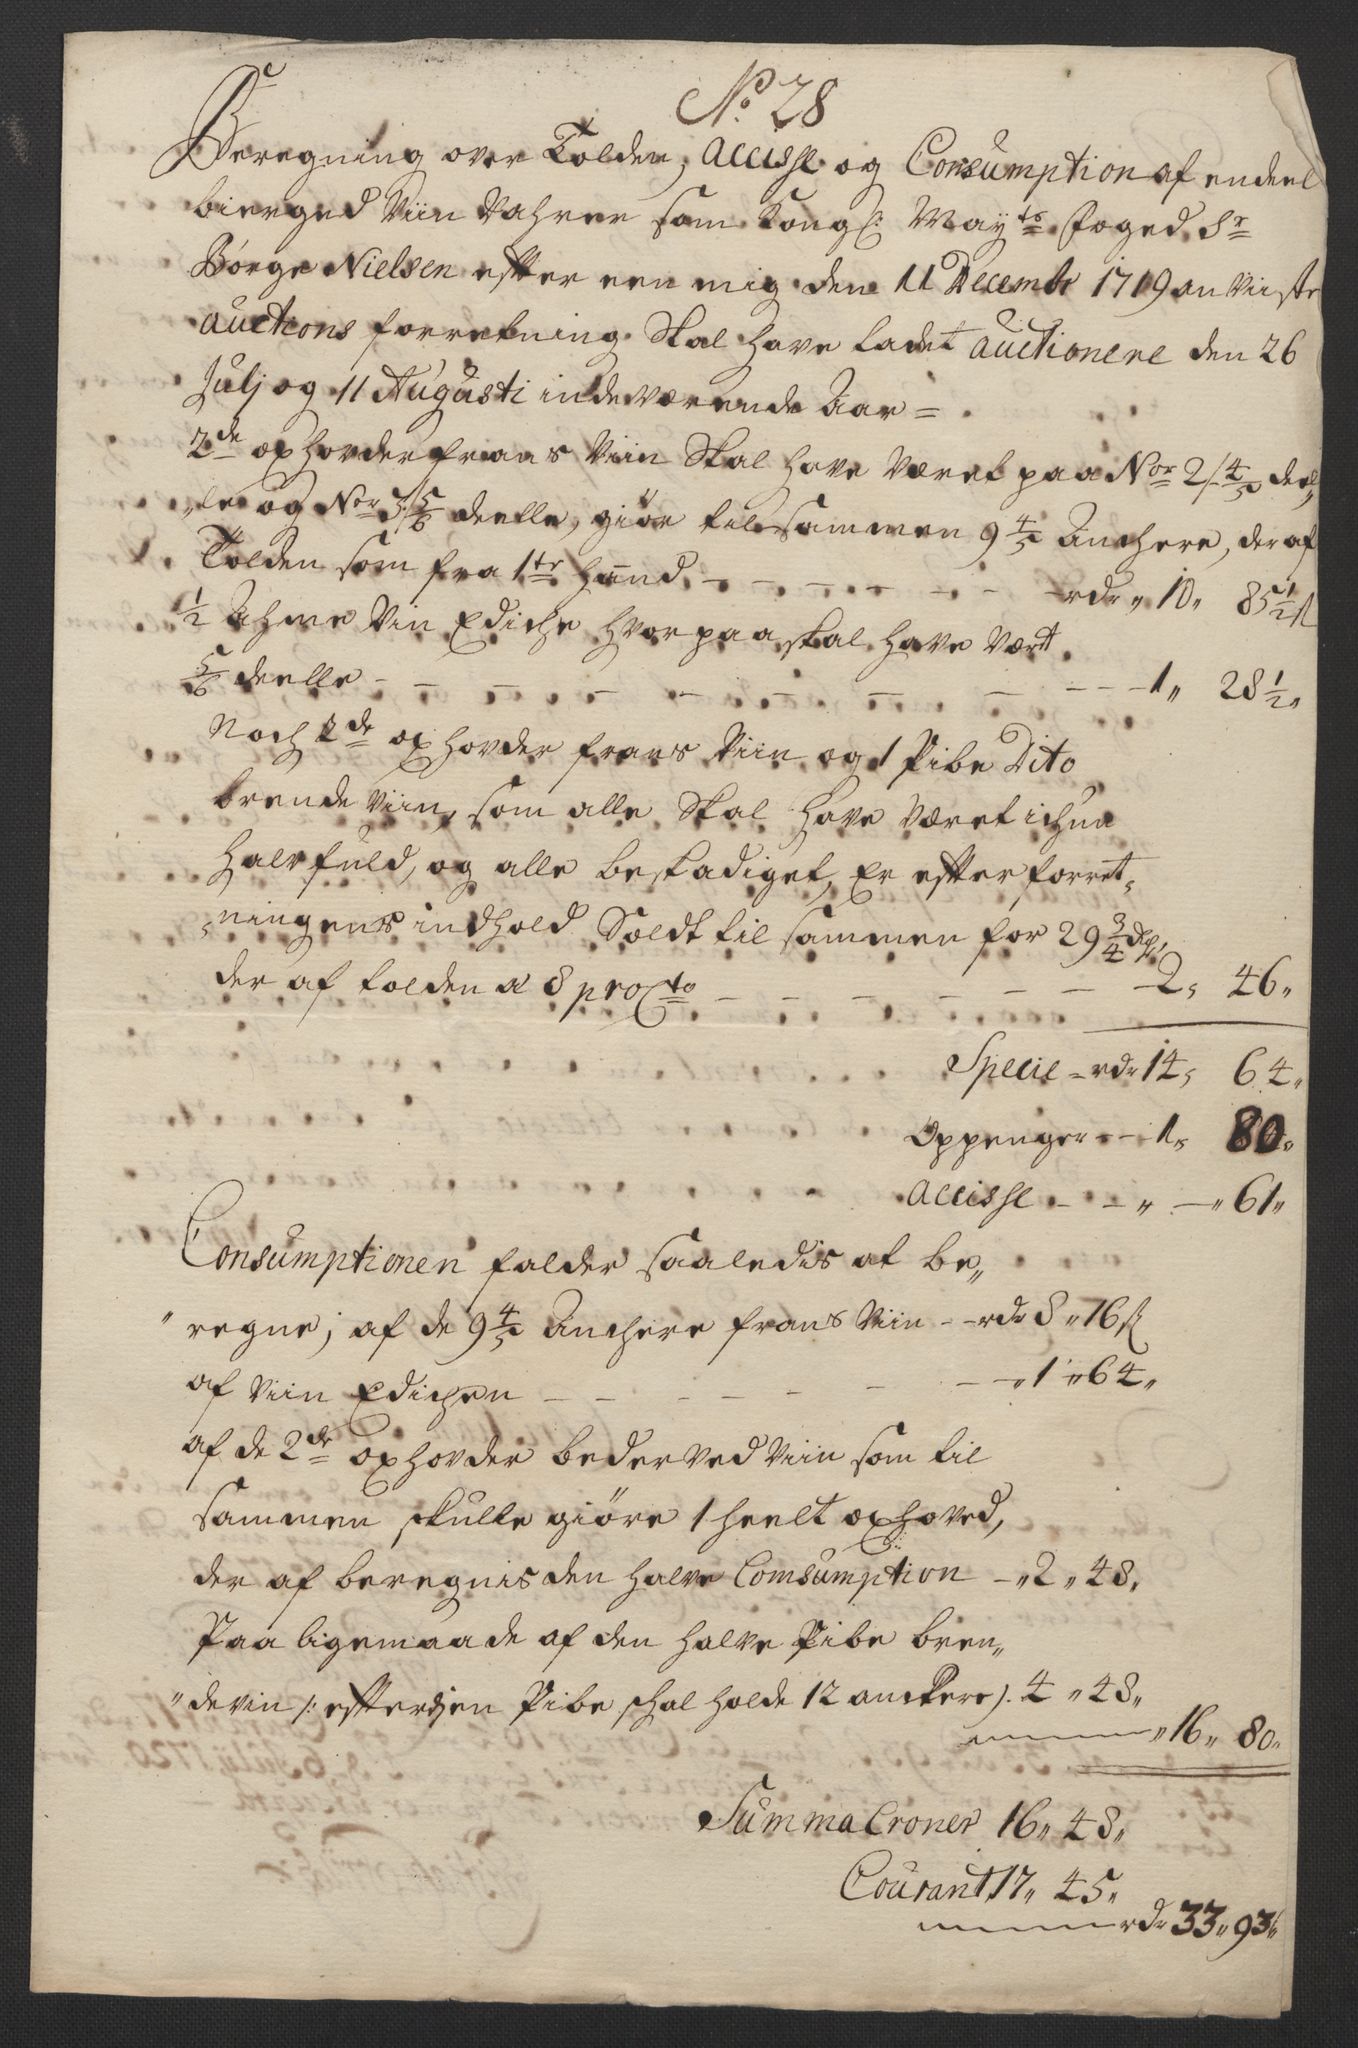 No. 28
Beregning over Tolden, Accisse og Consumption af endeel
bierged Viin Vahrer som Kongl: Mayts Foged Sr
Børge Nielsen efter een mig den 11 Decembr 1719 anviiste
auctions forretning Skal have ladet auctionere den 26
Julj og 11 Augusti indeværende Aar =
2de oxhovder frans Viin Skal have været paa Nor 2/ 4/5 deel„
„le og Nor 3/ 5/6 deelle, giør tilsammen 9 4/5 Anchere, der af
Tolden som fra 1te haand - - - - - - - rdr „ 10 „ 85 1/2 ß
1/2 Ahme Vin Ediche hvorpaa skal have vært
5/6 deelle - - - - - - - - - - 1 „ 28 1/2 „
Noch 2de oxhovder frans Viin og 1 Pibe Dito
brende Viin, som alle Skal have været ichun
halvfuld, og alle beskadiget, Er efter forret„
„ningens indhold Soldt til sammen for 29 3/4 dlr
der af tolden a 8 proCto - - - - - - - 2 „ 46 „
Specie - rdr 14 „ 64 „
Oppenger - - 1 „ 80 „
Accisse - - „ - „ 61 „
Consumptionen falder saaledis at be„
„regne, af de 9 4/5 Anchere frans Viin - - rdr 8 „ 16 ß
af Viin Edichen - - - - - - - „ 1 „ 64 „
af de 2de oxhovder bederved Viin som til
sammen skulle giøre 1 heelt oxhoved,
der af beregnis den halve Comsumption - „ 2 „ 48 „
Paa ligemaade af den halve Pibe bren„
„devin /: efterdjen Pibe schal holde 12 anckere ). 4 „ 48 „
„ 16 „ 80 „
Summa Croner 16 „ 48 „
Courant 17 „ 45 „
rdr 33 „ 93 „